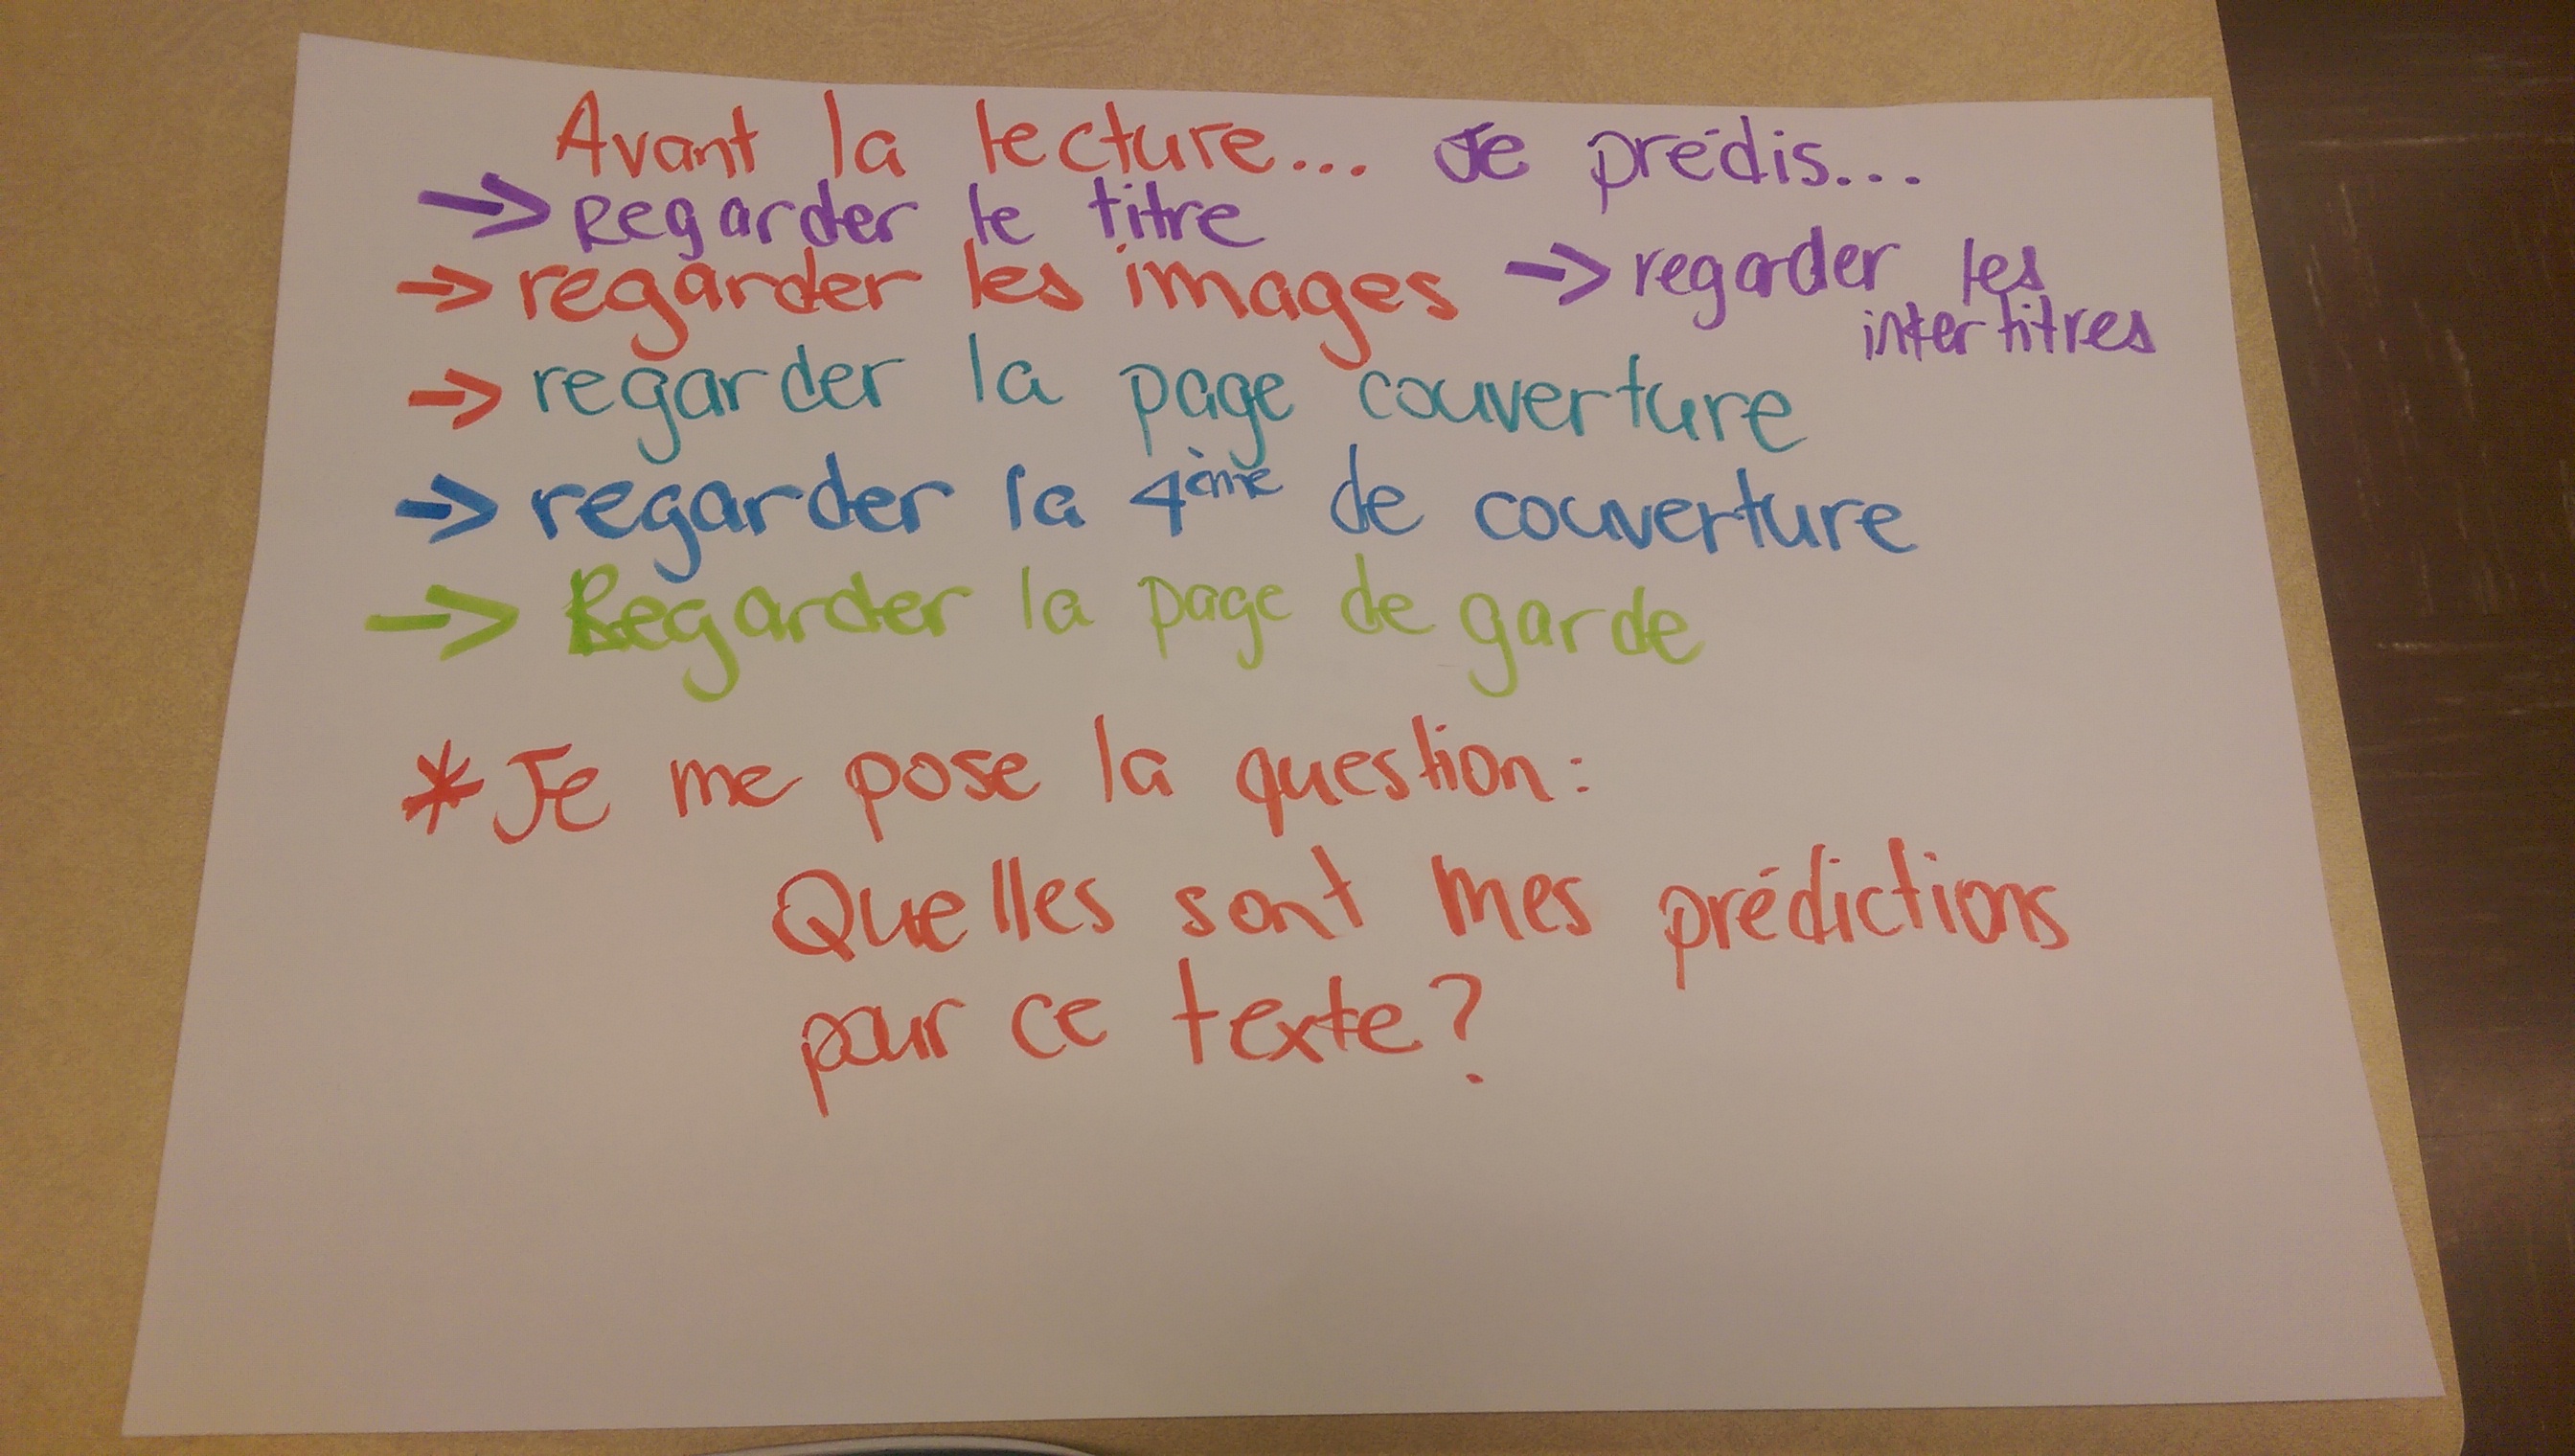 Avant la lecture... Je prédis...
→ Regarder le titre
→ regarder les images → regarder les
intertitres
→ regarder la page couverture
→ regarder la 4ème de couverture
→ Regarder la page de garde
* Je me pose la question :
Quelles sont mes prédictions
pour ce texte ?